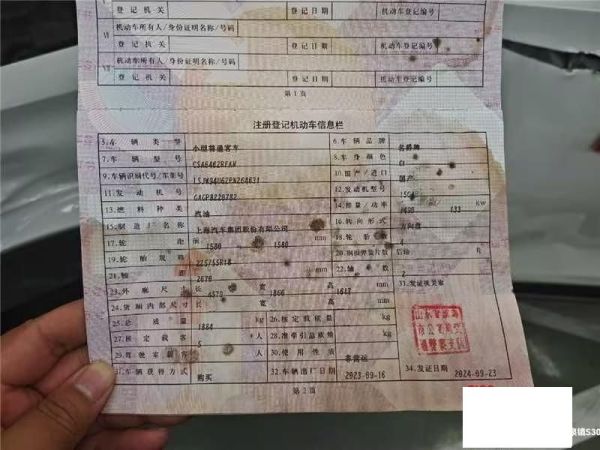 登记机关 登记日期 机动车登记编号
Ⅵ 机动车所有人/身份证明名称/号码
登记机关 登记日期 机动车登记编号
Ⅶ 机动车所有人/身份证明名称/号码
登记机关 登记日期 机动车登记编号
第1页
注册登记机动车信息栏
5.车辆类型 小型普通客车 6.车辆品牌 名爵牌
7.车辆型号 8.车身颜色 白
9.车辆识别代号/车架号 10.国产/进口 国产
11.发动机号 12.发动机型号
13.燃料种类 汽油 14.排量/功率 133 kw
15.制造厂名称 上海汽车集团股份有限公司 16.转向形式 方向盘
17.轮距 1580 1580 mm 18.轮胎数 4
19.轮胎规格 225/55R18 20.钢板弹簧片数 后轴
21.轴距 2670 22.轴数 2
23.外廓尺寸 长 4579 宽 1866 高 1617 33.发证机关章
24.货厢内部尺寸 长 宽 高 mm
25.总质量 1884 kg 26.核定载质量 kg
27.核定载客 5 人 28.准牵引总质量 kg
29.驾驶室载客 人 30.使用性质 非营运
31.车辆获得方式 购买 32.车辆出厂日期 2023-09-16 34.发证日期 2024-09-23
第2页